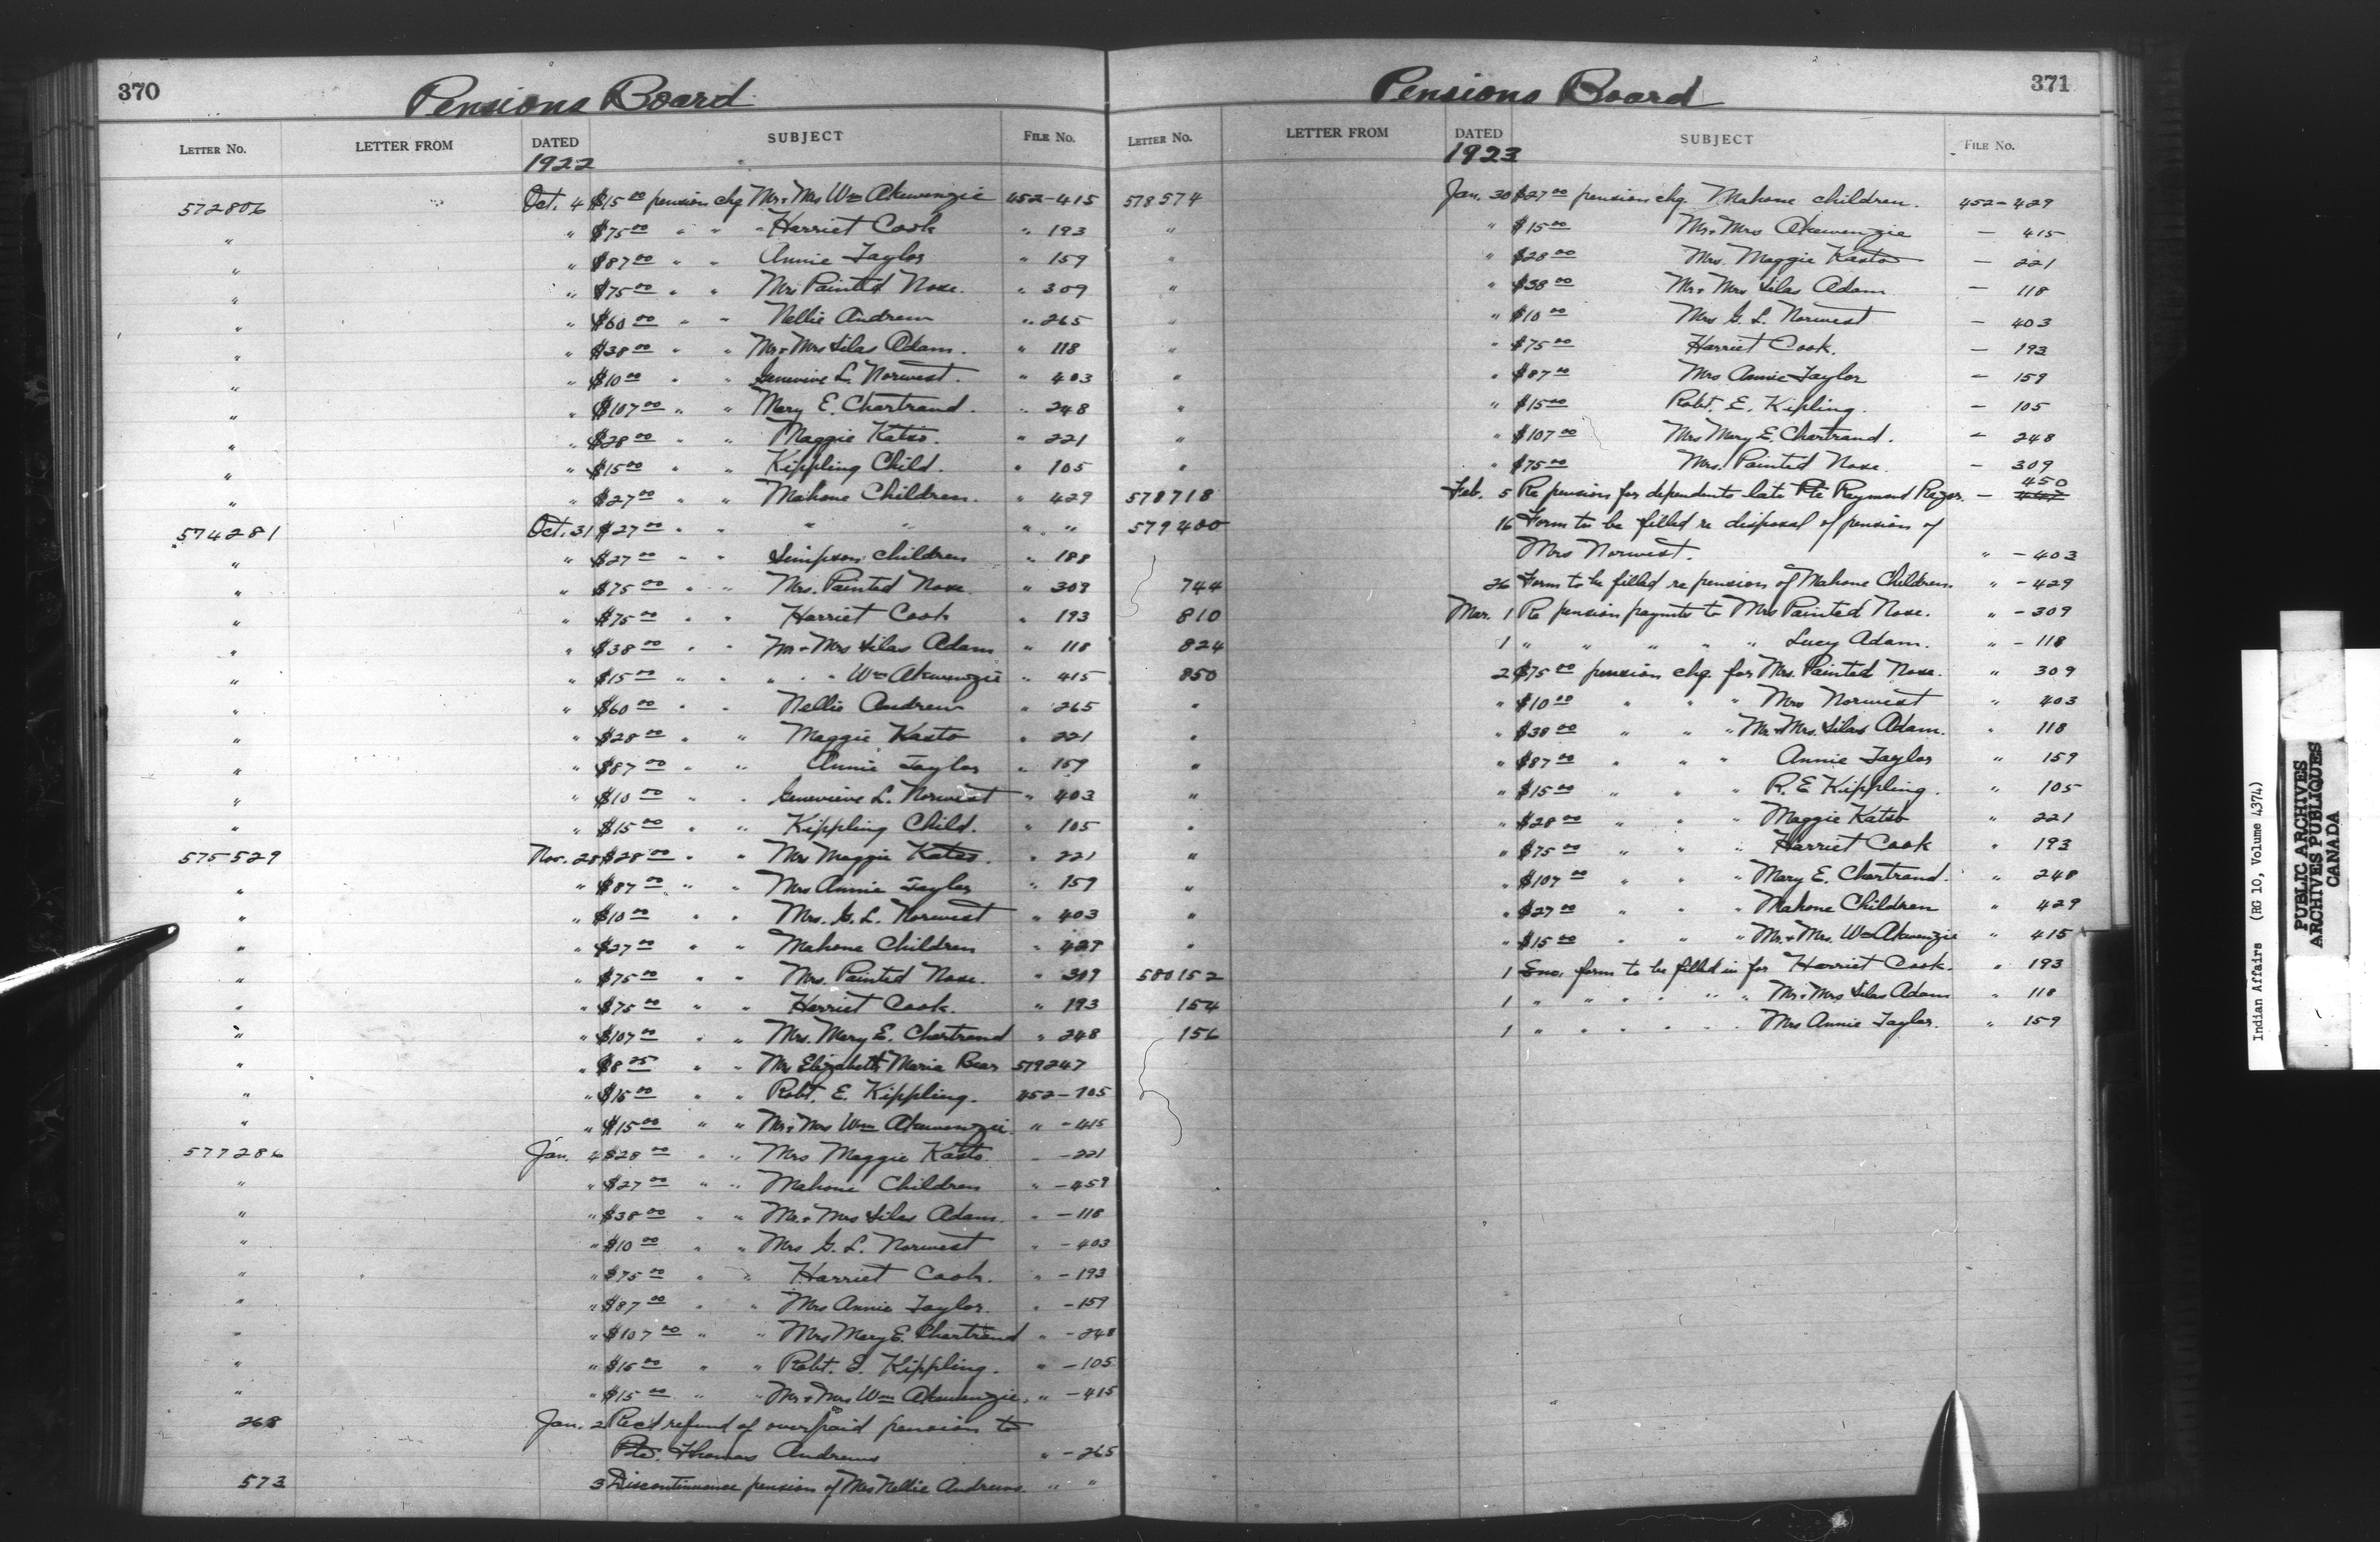 370
Pensions Board
LETTER NO. LETTER FROM DATED SUBJECT FILE NO.
1922
572806 Oct. 4 $15 00 pension chq Mr & Mrs Wm Akewenzie 452-415
" " $75 00 " " " Harriet Cook " 193
" " $87 00 " " Annie Taylor " 159
" " $75 00 " " Mrs Painted Nose. " 309
" " $60 00 " " Nellie Andrew " 265
" " $38 00 " " Mr & Mrs Silas Adam. " 118
" " $10 00 " " Genevive L. Norwest. " 403
" " $107 00 " " Mary E. Chartrand. " 248
" " $28 00 " " Maggie Katso. " 221
" " $15 00 " " Kippling Child. " 105
" " $27 00 " " Mahone Children. " 429
574281 Oct. 31 $27 00 " " " " " "
" " $27 00 " " Simpson Children " 188
" " $75 00 " " Mrs. Painted Nose. " 309
" " $75 00 " " Harriet Cook " 193
" " $38 00 " " Mr & Mrs Silas Adam " 118
" " $15 00 " " " " " Wm Akewenzie " 415
" " $60 00 " " Nellie Andrew " 265
" " $28 00 " " Maggie Kasto " 221
" " $87 00 " " Annie Taylor " 159
" " $10 00 " " Genevieve L. Norwest " 403
" " $15 00 " " Kippling Child. " 105
575529 Nov. 28 $28 00 " " Mrs Maggie Katso. " 221
" " $87 00 " " Mrs Annie Taylor " 159
" " $10 00 " " Mrs. G. L. Norwest " 403
" " $27 00 " " Mahone Children " 429
" " $75 00 " " Mrs. Painted Nose. " 309
" " $75 00 " " Harriet Cook. " 193
" " $107 00 " " Mrs. Mary E. Chartrand " 248
" " $8 25 " " Mr Elizabeth Maria Bear 519247
" " $15 00 " " Robt. E. Kippling. 452-105
" " $15 00 " " Mr & Mrs Wm Akewenzie. " -415
577286 Jan. 4 $28 00 " " Mrs Maggie Kasto. " -221
" " $27 00 " " Mahone Children " -459
" " $38 00 " " Mr. & Mrs Silas Adam. " -118
" " $10 00 " " Mrs G. L. Norwest " -403
" " $75 00 " " Harriet Cook. " -193
" " $87 00 " " Mrs Annie Taylor. " -159
" " $107 00 " " Mrs Mary E. Chartrand " -248
" " $15 00 " " Robt. E. Kippling. " -105
" " $15 00 " " Mr & Mrs Wm Akewenzie. " -415
268 Jan. 2 Rec'd refund of overpaid pension to
Pte. Thomas Andrews " -265
573 3 Discontinuance pension of Mrs Nellie Andrews. " "
Pensions Board
371
LETTER NO. LETTER FROM DATED SUBJECT FILE NO.
1923
578574 Jan. 30 $27 00 pension chq. Mahone children. 452-429
" " $15 00 Mr & Mrs Akewenzie - 415
" " $28 00 Mrs. Maggie Kasto - 221
" " $38 00 Mr & Mrs Silas Adam - 118
" " $10 00 Mrs G. L. Norwest - 403
" " $75 00 Harriet Cook. - 193
" " $87 00 Mrs Annie Taylor - 159
" " $15 00 Robt. E. Kipling. - 105
" " $107 00 Mrs Mary E. Chartrand. - 248
" " $75 00 Mrs. Painted Nose. - 309
578718 Feb. 5 Re pension for dependents late Pte Raymond - 450
579400 16 Form to be filled re disposal of pension of
Mrs Norwest. " -403
744 26 Form to be filled re pension of Mahone Children. " -429
810 Mar. 1 Re pension paymts to Mrs Painted Nose. " -309
824 1 " " " " " Lucy Adam. " -118
850 2 $75 00 pension chq. for Mrs. Painted Nose. " 309
" " $10 00 " " " Mrs Norwest " 403
" " $38 00 " " " Mr. & Mrs. Silas Adam. " 118
" " $87 00 " " " Annie Taylor " 159
" " $15 00 " " " R. E Kippling. " 105
" " $28 00 " " " Maggie Katso " 221
" " $75 00 " " " Harriet Cook " 193
" " $107 00 " " " Mary E. Chartrand. " 248
" " $27 00 " " " Mahone Children " 429
" " $15 00 " " " Mr. & Mrs. Wm Akewenzie " 415
580152 1 Enc. form to be filled in for Harriet Cook. " 193
154 1 " " " " " " Mr & Mrs Silas Adam " 118
156 1 " " " " " " Mrs Annie Taylor. " 159
Indian Affairs (RG 10, Volume 4374)
PUBLIC ARCHIVES
ARCHIVES PUBLIQUES
CANADA